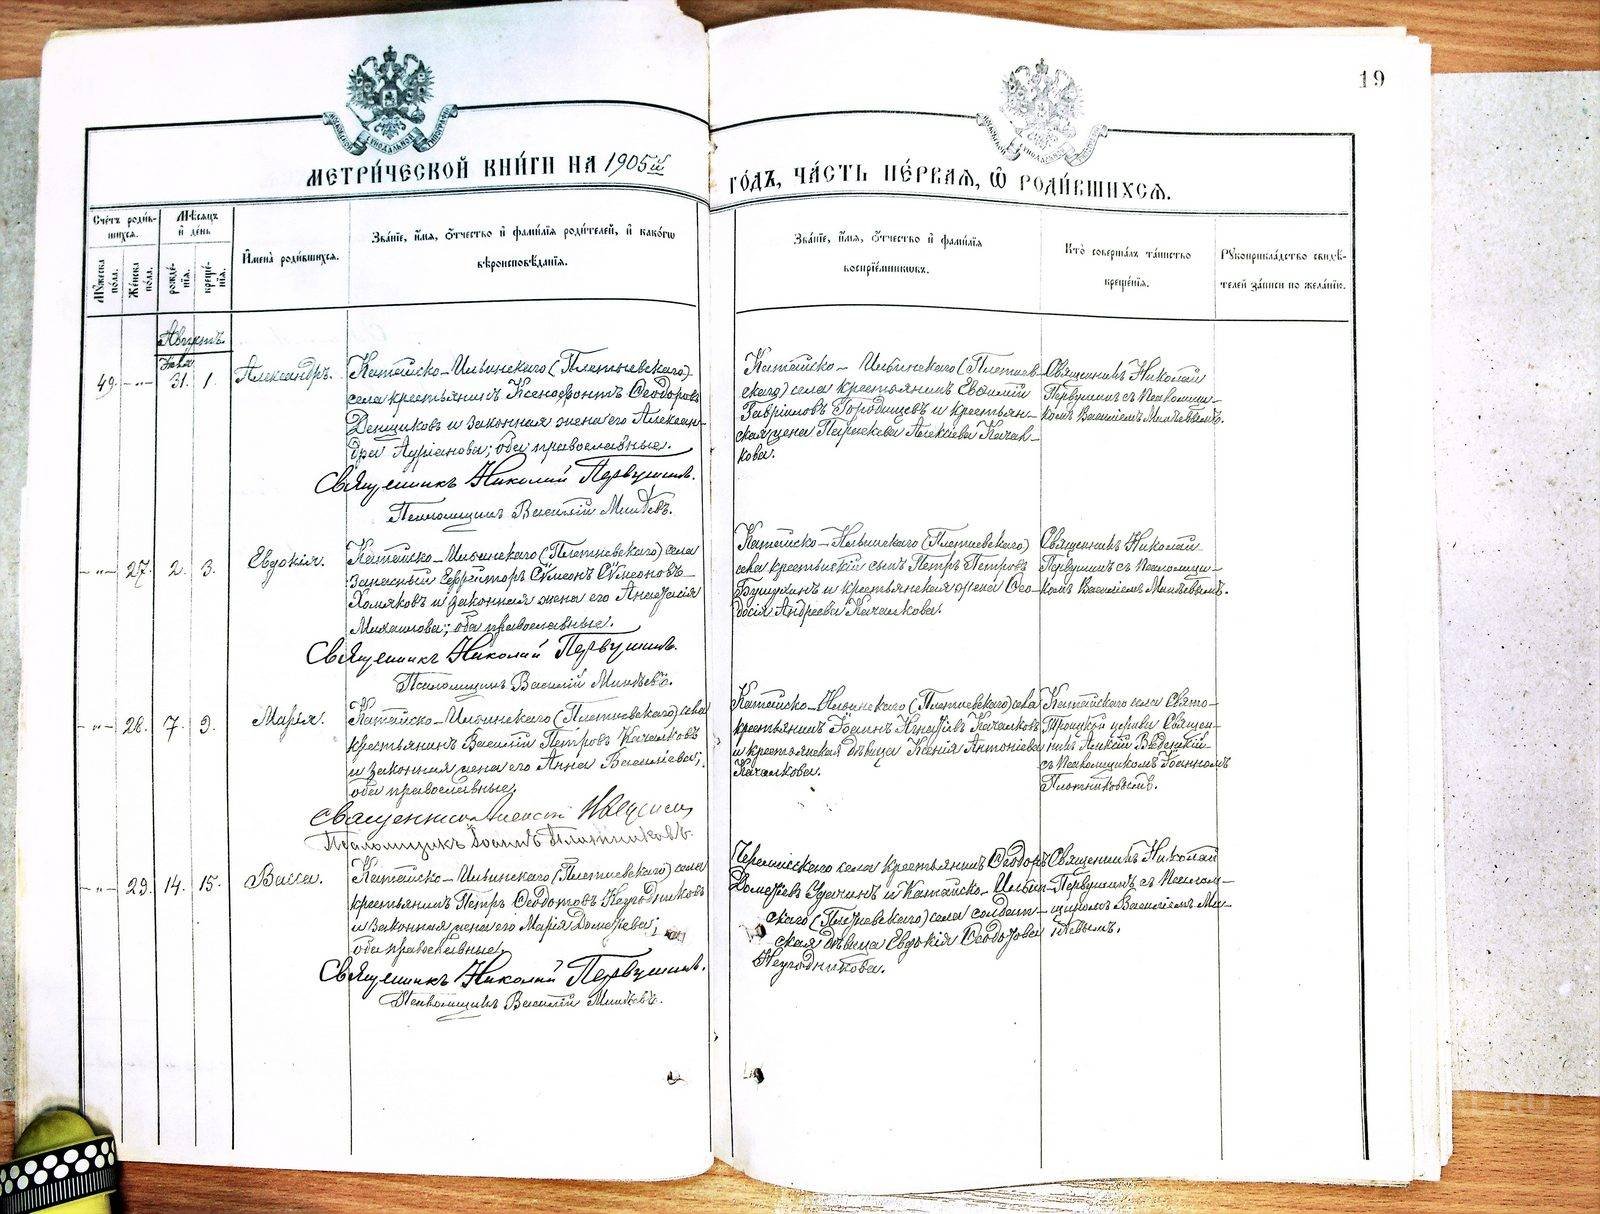 19
МЕТРИ́ЧЕСКОЙ КНИ́ГИ НА 1905й
ГО́ДЪ, ЧА́СТЬ ПЕ́РВАѦ, Ѡ РОДИ́ВШИХСѦ.
Сче́тъ роди́в-
шихсѧ.
Му́жеска по́ла.
Же́нска по́ла.
Мѣ́сѧцъ
и҆ де́нь
рожде́-
нїѧ.
креще́-
нїѧ.
И҆мена̀ роди́вшихсѧ.
Зва́нїе, и҆́мѧ, ѻ҆́тчество и҆ фами́лїѧ роди́телей, и҆ како́гѡ
вѣроисповѣ́данїѧ.
Зва́нїе, и҆́мѧ, ѻ҆́тчество и҆ фами́лїѧ
воспрїе́мникѡвъ.
Кто̀ соверша́лъ та́инство
креще́нїѧ.
Рꙋкоприкла́дство свидѣ́-
телей за́писи по жела́нїю.
Августъ
49. -"- 31. 1. Александръ.
Катайско-Ильинскаго (Плетневскаго)
села крестьянинъ Ксенофонтъ Ѳеодоровъ
Денщиковъ и законная жена его Алексан-
дра Адріанова; оба православные.
Священникъ Николай Первушинъ.
Псаломщикъ Василій
Катайско-Ильинскаго (Плетнев-
скаго) села крестьянинъ Евѳимій
Гавріиловъ Городищевъ и крестьян-
ская жена Параскева Алексіева Качал-
кова.
Священникъ Николай
Первушинъ съ псаломщи-
комъ Василіемъ
-"- 27. 2. 3. Евдокія.
Катайско-Ильинскаго (Плетневскаго) села
запасный Ефрейторъ Сѷмеонъ Сѷмеоновъ
Хомяковъ и законная жена его Анастасія
Михаилова; оба православные.
Священникъ Николай Первушинъ.
Псаломщикъ Василій
Катайско-Ильинскаго (Плетневскаго)
села крестьянскій сынъ Петръ Петровъ
и крестьянская жена Ѳео-
досія Андреева Качалкова.
Священникъ Николай
Первушинъ съ псаломщи-
комъ Василіемъ
-"- 28. 7. 9. Марія.
Катайско-Ильинскаго (Плетневскаго) села
крестьянинъ Василій Петровъ Качалковъ
и законная жена его Анна Василіева;
оба православные.
Священникъ Алексій Введенскій
Псаломщикъ Іоаннъ Плотниковъ.
Катайско-Ильинскаго (Плетневскаго) села
крестьянинъ Іоаннъ Качалковъ
и крестьянская дѣвица Ксенія Антоніева
Качалкова.
Катайскаго села Свято-
Троицкой церкви Священ-
никъ Алексій Введенскій
съ псаломщикомъ Іоанномъ
Плотниковымъ.
-"- 29. 14. 15. Васса.
Катайско-Ильинскаго (Плетневскаго) села
крестьянинъ Петръ Ѳеодотовъ Неугодниковъ
и законная жена его Марія Дометіева;
оба православные.
Священникъ Николай Первушинъ.
Псаломщикъ Василій
села крестьянинъ Ѳеодоръ
Дометіевъ и Катайско-Ильин-
скаго (Плетневскаго) села солдат-
ская дѣвица Евдокія Ѳеодотова
Неугодникова.
Священникъ Николай
Первушинъ съ псалом-
щикомъ Василіемъ